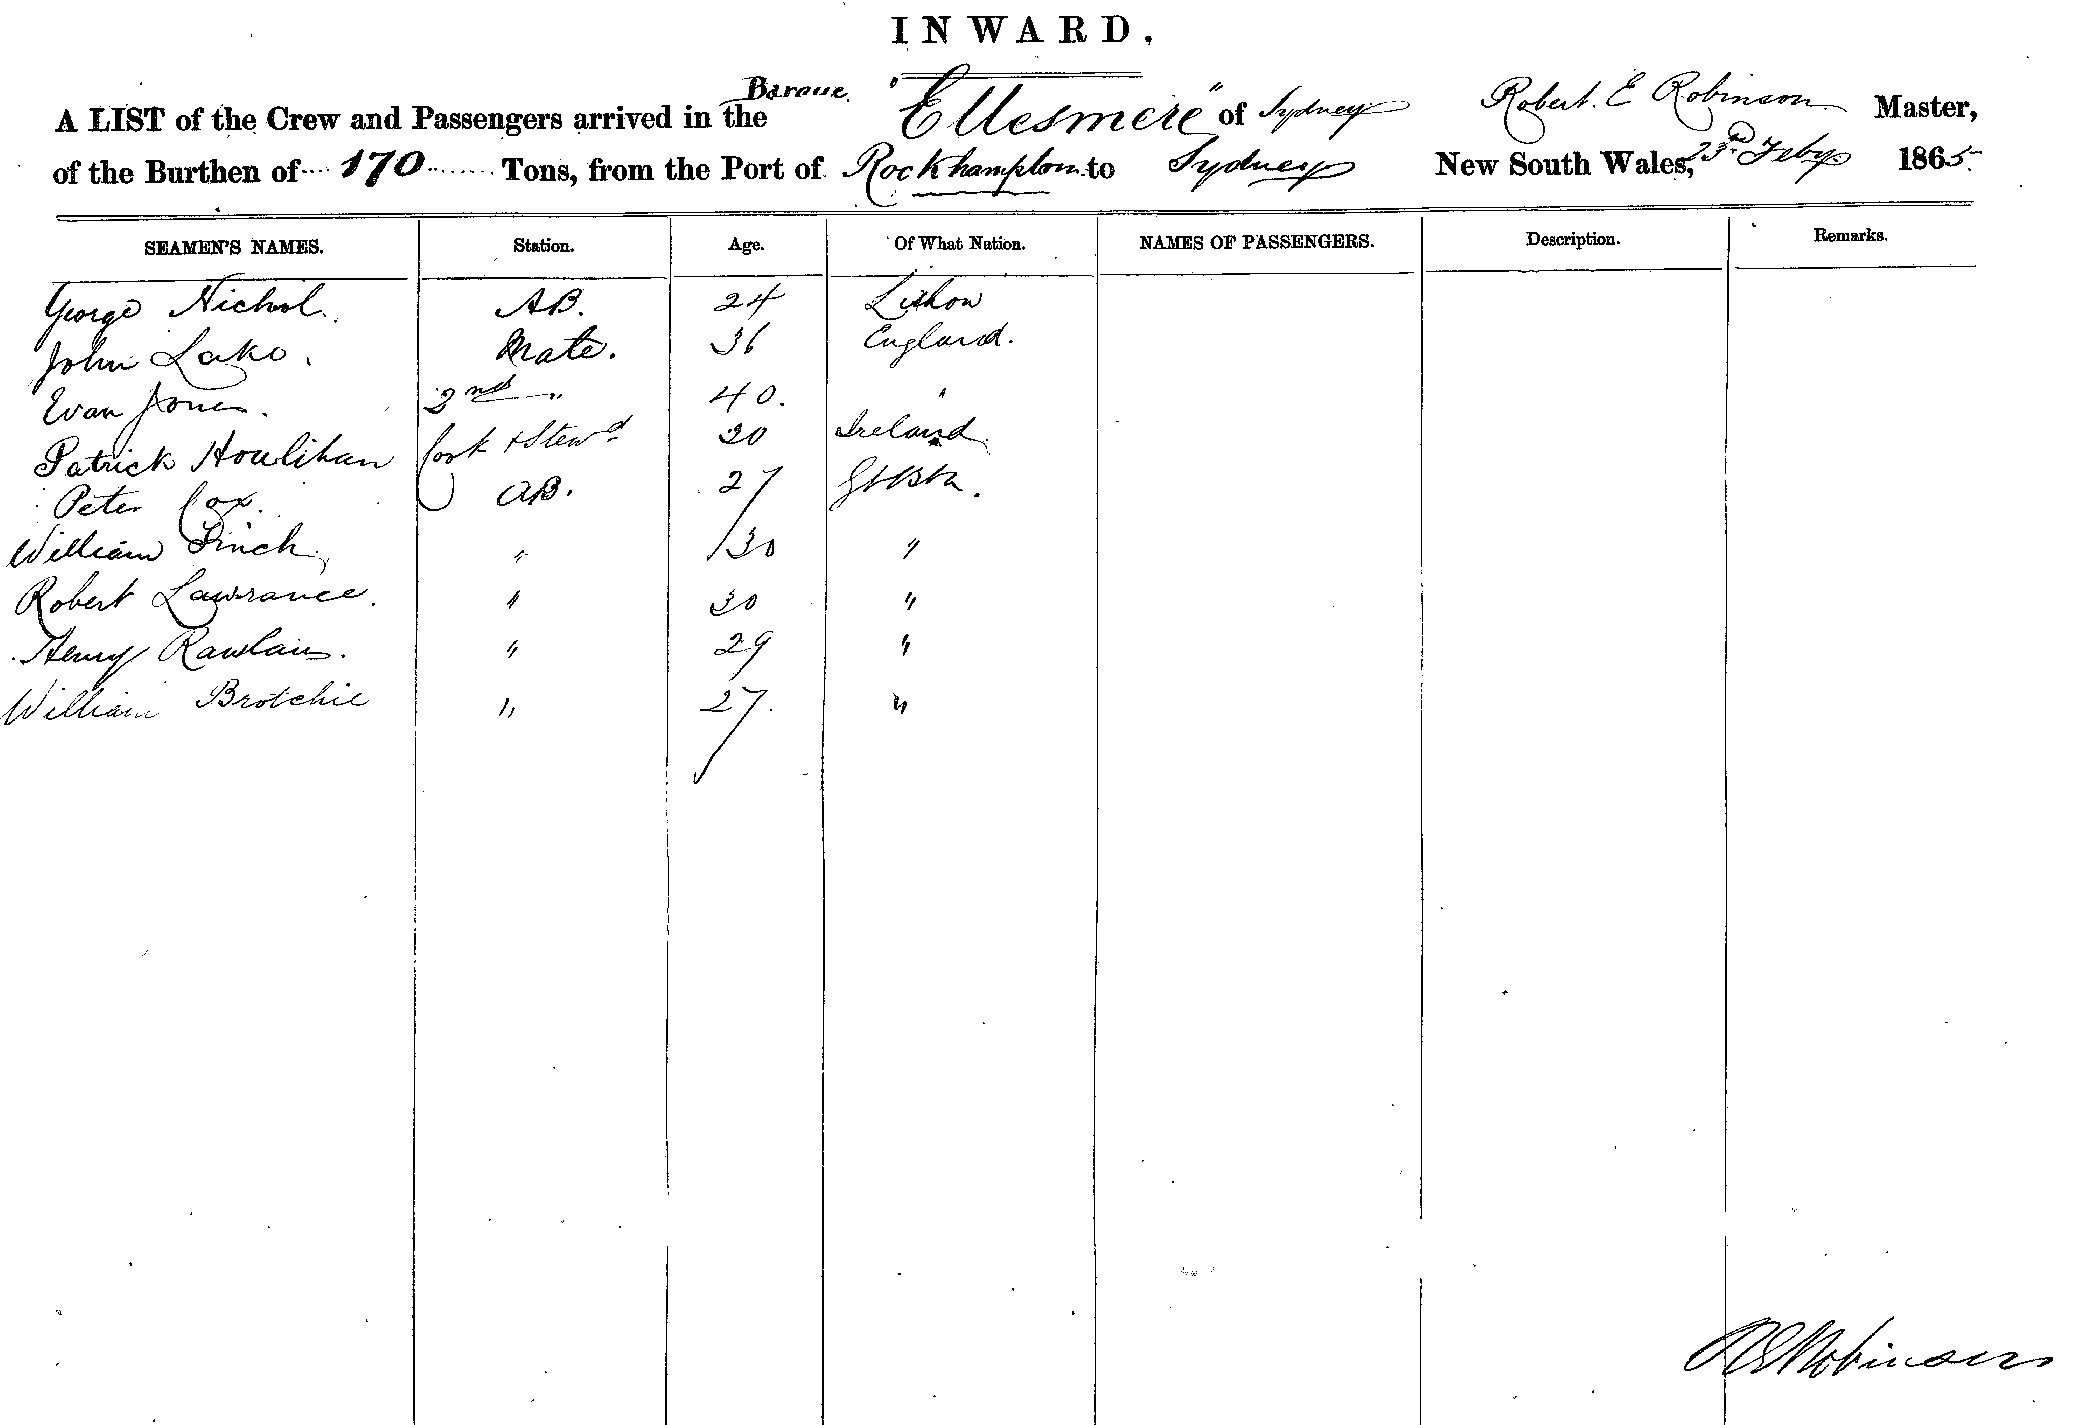 INWARD.
Barque
A LIST of the Crew and Passengers arrived in the "Ellesmere" of Sydney Robert. E Robinson Master,
of the Burthen of 170 Tons, from the Port of Rockhampton to Sydney New South Wales, 23rd Feby 1865.
SEAMEN'S NAMES. Station. Age. Of What Nation. NAMES OF PASSENGERS. Description. Remarks.
George Nichol. AB. 24
John Lake. Mate. 36 England.
Evan Jones. 2nd " 40. "
Patrick Houlihan Cook & Stewd 30 Ireland.
Peter Cox. AB. 27
William Finch. " 30 "
Robert Lawrance. " 30 "
Henry " 29 "
William Brotchie " 27. "
R E Robinson